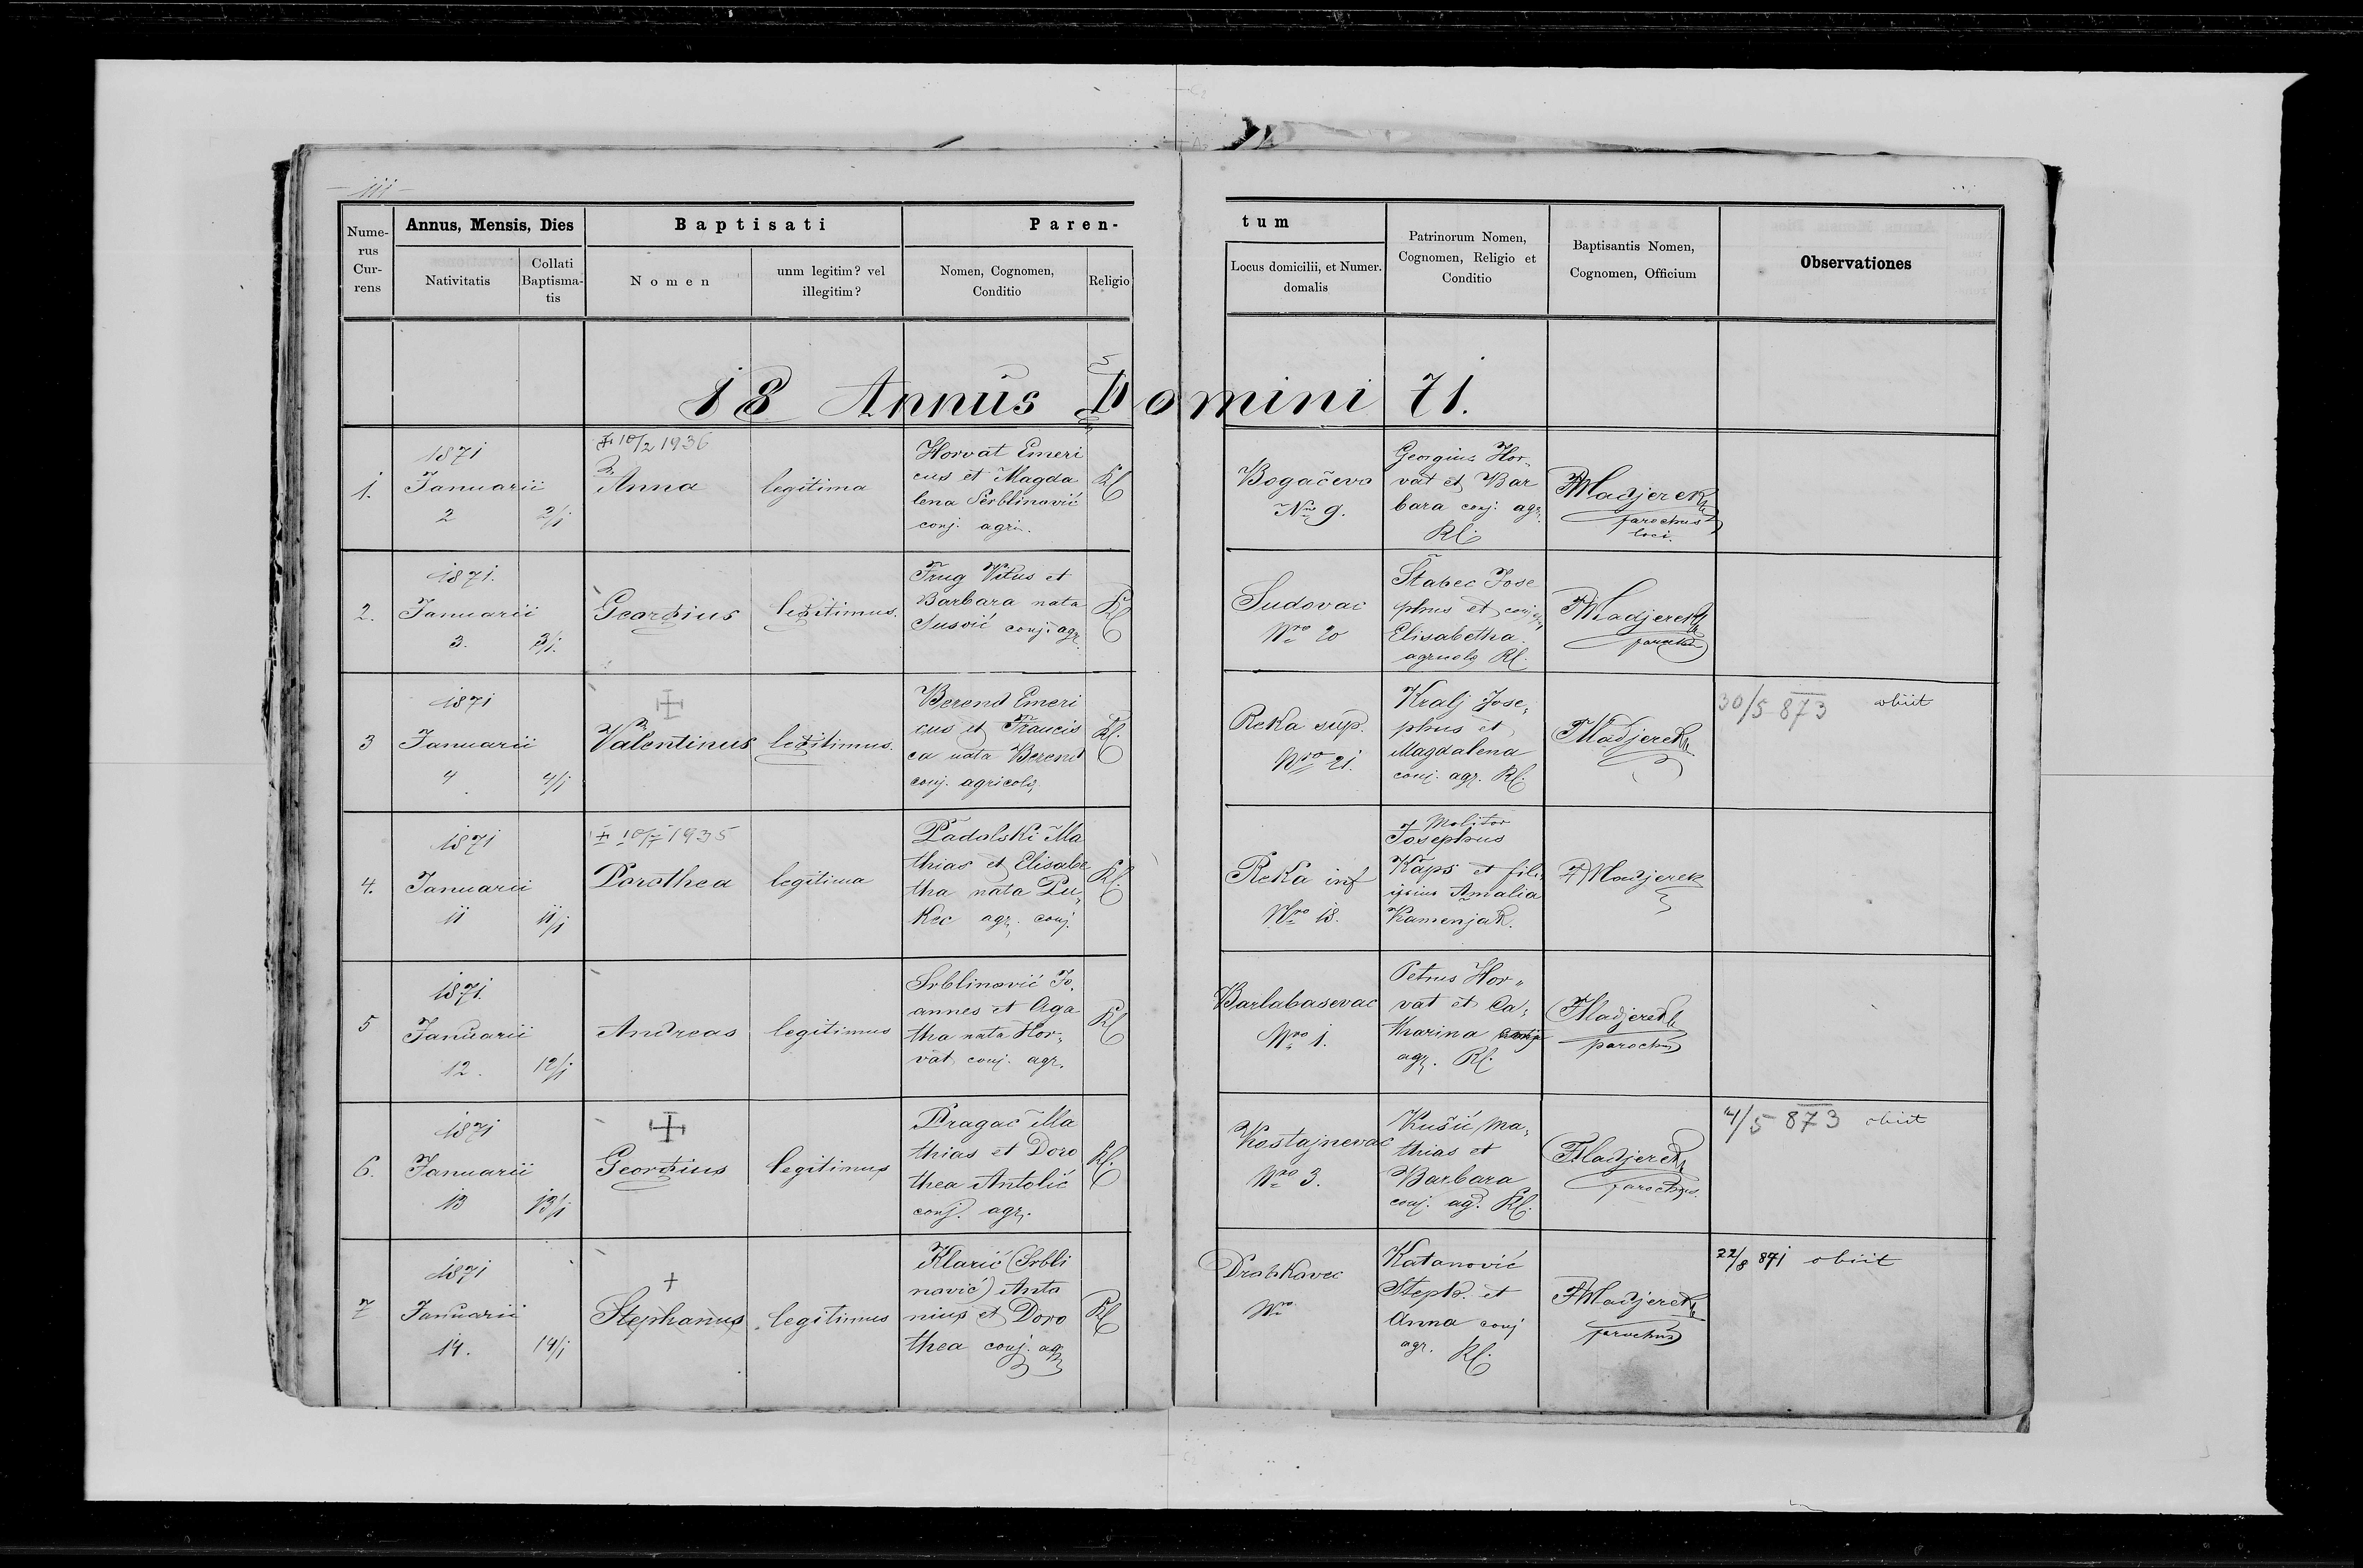 Numerus Currens
Annus, Mensis, Dies
Nativitatis
Collati Baptismatis
Baptisati
Nomen
unm legitim? vel illegitim?
Paren-
Nomen, Cognomen, Conditio
Religio
tum
Locus domicilii, et Numer. domalis
Patrinorum Nomen, Cognomen, Religio et Conditio
Baptisantis Nomen, Cognomen, Officium
Observationes
18 Annus Domini 71.
1.
1871
Januarii
2
2/1
10/2 1936
Anna
legitima
Horvat Emeri
cus et Magda
lena Serblinović
conj. agri.
Rl
Bogačevo
Nro 9.
Georgius Hor„
vat et Bar
bara conj. agr.
Rl.
FMadjerek
parochus
loci.
2.
1871.
Januarii
3.
3/1.
Georgius
legitimus.
Frug Vitus et
Barbara nata
Susović conj. agr.
Rl
Sudovac
Nro 20
Štabec Jose
phus et conj
Elisabetha
Rl.
FMadjerek
parochus
3
1871
Januarii
4
4/1
Valentinus
legitimus.
Berend Emeri
cus et Francis
ca nata Berend
conj. agricolę
Rl.
Reka sup.
Nro 21.
Kralj Jose„
phus et
Magdalena
conj. agr. Rl.
FMadjerek
30/5 873 obiit
4.
1871
Januarii
11
11/1
10/7 1935
Dorothea
legitima
Padolski Ma
thias et Elisabe
tha nata Pu„
kec agr. conj.
Rl.
Reka inf
Nro 18.
Molitor
Josephus
Kaps et fili
ipsius Amalia
Kamenjak.
FMadjerek
5
1871.
Januarii
12.
12/1
Andreas
legitimus
Srblinović Jo„
annes et Aga
tha nata Hor„
vat conj. agr.
Rl
Barlabasevac
Nro 1.
Petrus Hor„
vat et Ca„
tharina conj
agr. Rl.
FMadjerek
parochus
6.
1871
Januarii
13
13/1
Georgius
legitimus
Dragač Ma
thias et Doro
thea Antolić
conj. agr.
Rl.
Kostajnevac
Nro 3.
Kušić Ma„
thias et
Barbara
conj. ag. Rl.
FMadjerek
parochus.
/5 873 obiit
7
1871
Januarii
14.
14/1
Stephanus
legitimus
Klarić (Srbli
nović) Anto
nius et Doro
thea conj. agr
Rl
Drabkovec
Nro
Katanović
Steph. et
Anna conj
agr. Rl.
FMadjerek
parochus
22/8 871 obiit